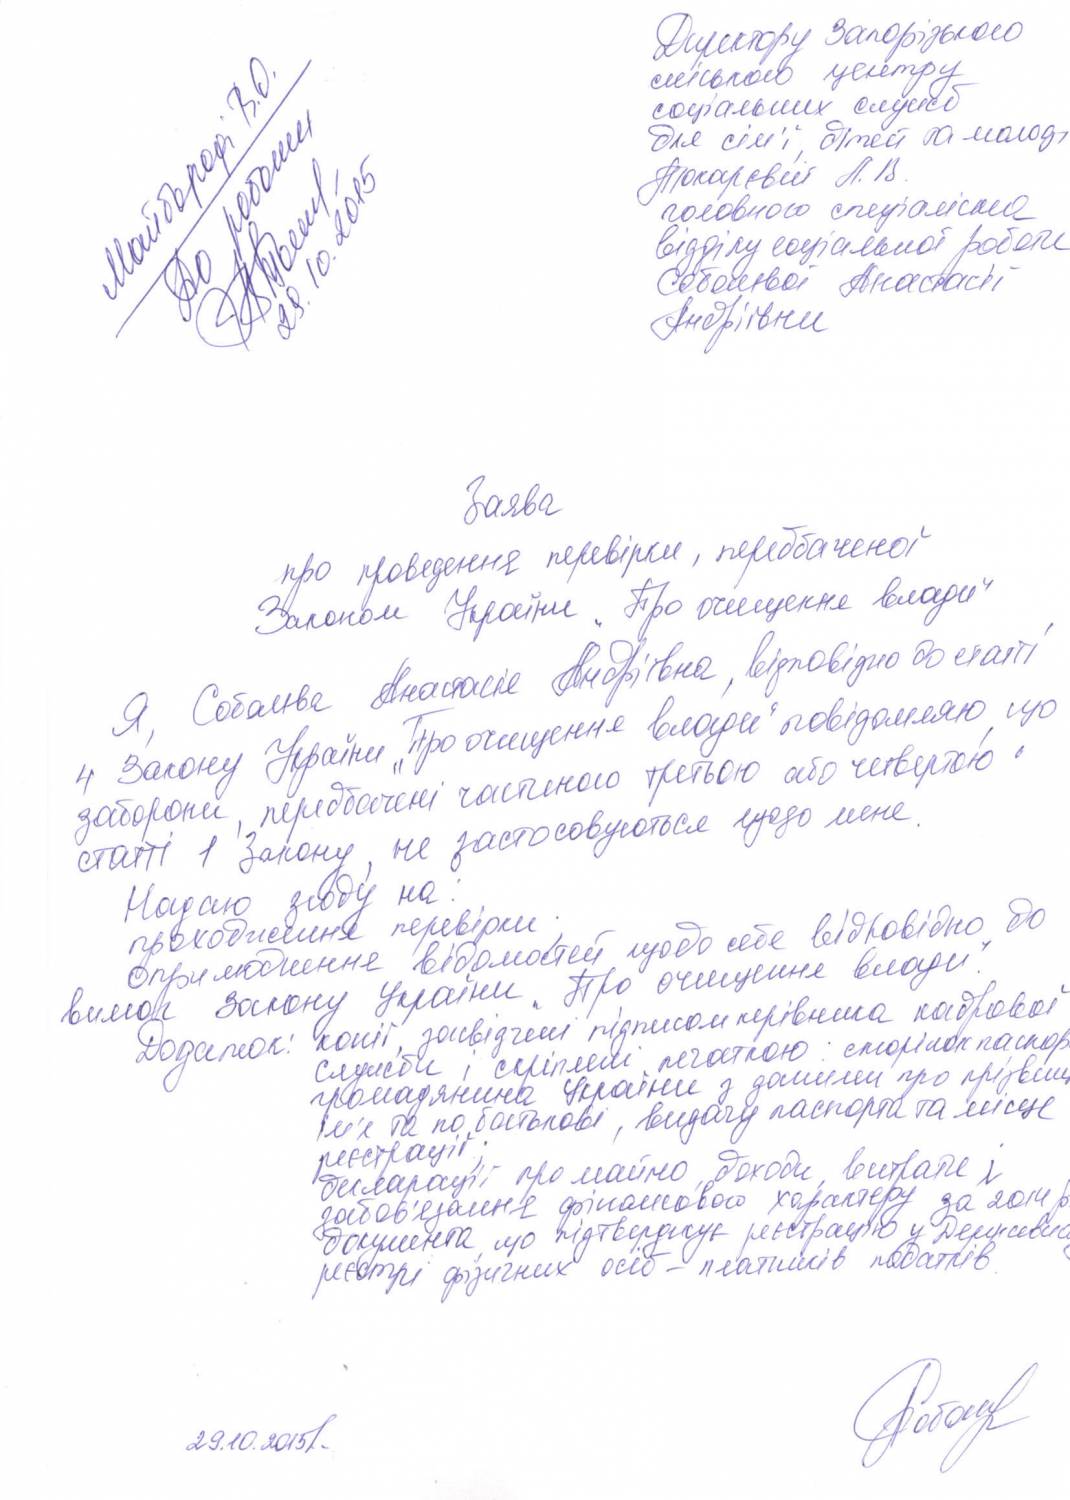 Майбороді В.О.
До роботи
29.10.2015
Директору Запорізького
міського центру
соціальних служб
для сім'ї, дітей та молоді
Токарєвій Л.В.
головного спеціаліста
відділу соціальної роботи
Соболєвої Анастасії
Андріївни
Заява
про проведення перевірки, передбаченої
Законом України „Про очищення влади"
Я, Соболєва Анастасія Андріївна, відповідно до статті
4 Закону України „Про очищення влади" повідомляю, що
заборони, передбачені частиною третьою або четвертою
статті 1 Закону, не застосовуються щодо мене.
Надаю згоду на:
проходження перевірки;
оприлюднення відомостей щодо себе відповідно до
вимог Закону України „Про очищення влади".
Додаток: копії, засвідчені підписом керівника кадрової
служби і скріплені печаткою: сторінок паспор
громадянина України з даними про прізвище
ім'я та по батькові, видачу паспорта та місце
реєстрації;
декларації про майно, доходи, витрати і
зобов'язання фінансового характеру за 2014 р.
документа, що підтверджує реєстрацію у Державно
реєстрі фізичних осіб – платників податків.
29.10.2015р.